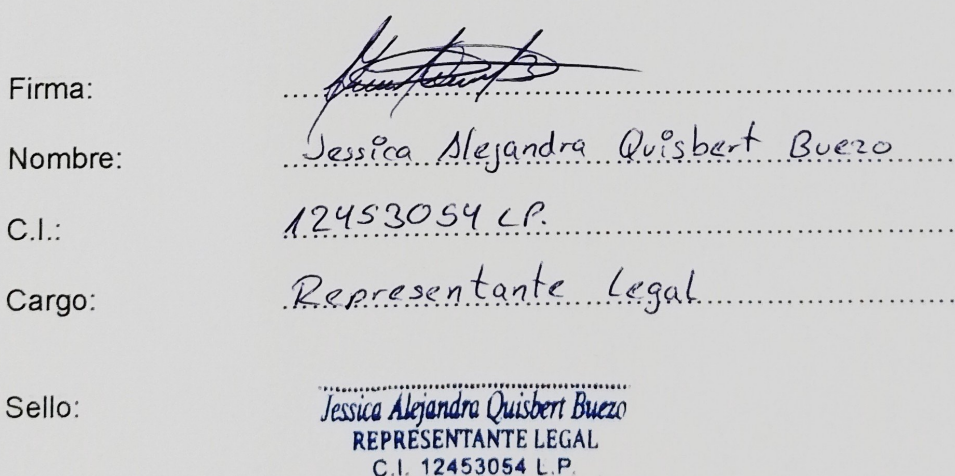 Firma:
Nombre: Jessica Alejandra Quisbert Buezo
C.I.: 12453054 LP.
Cargo: Representante Legal
Sello:
Jessica Alejandra Quisbert Buezo
REPRESENTANTE LEGAL
C.I. 12453054 L.P.